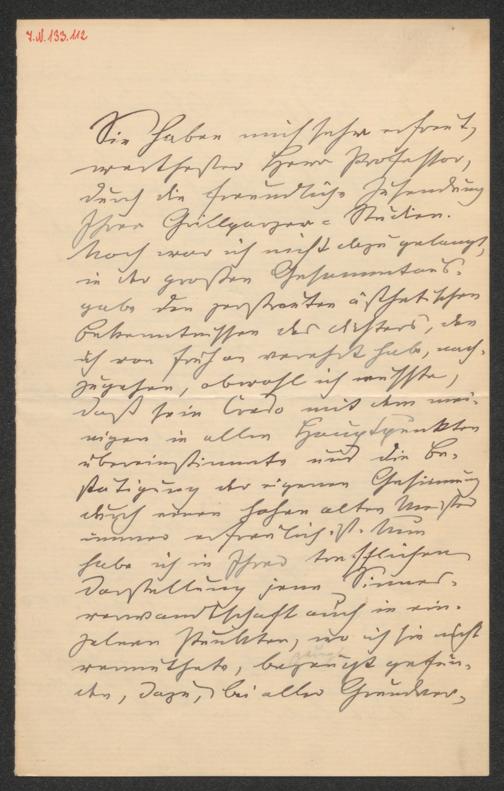 J.N. 133.112
Sie haben mich sehr erfreut,
werthester Herr Professor,
durch die freundliche Zusendung
Ihrer Grillparzer-Studien.
Noch war ich nicht dazu gelangt,
in der großen Gesammtaus-
gabe den zerstreuten ästhetischen
Bekenntnissen des Dichters, den
ich von früh an verehrt habe, nach-
zugehen, obwohl ich wußte,
daß sein Credo mit dem mei-
nigen in allen Hauptpunkten
übereinstimmte und die Be-
stätigung der eigenen Gesinnung
durch einen hohen alten Meister
immer erfreulich ist. Nun
habe ich in Ihrer trefflichen
Darstellung jene Sinnes-
verwandtschaft auch in ein-
zelnen Punkten, wo ich sie nicht
vermuthete, bezeugt gefun-
den, dazu, bei aller Grundver-